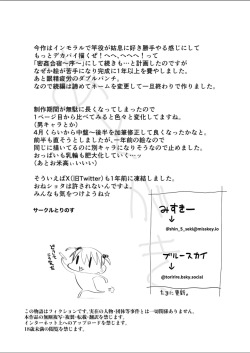 今作はインモラルで竿役が姑息に好き勝手やる感じにして
もっとデカパイ描くぜ！へへ、へへへ！って
「密姦合宿～序～」にして続きも…と計画したのですが
なぜか絵が苦手になり完成に1年以上を費やしました。
あと眼精疲労のダブルパンチ。
なので続編は諦めてネームを変更して一旦終わりで作りました。
制作期間が無駄に長くなってしまったので
1ページ目から比べてみると色々と変化してますね。
（男キャラとか）
4月くらいから中盤～後半を加筆修正して良くなったかなと。
前半も直そうとしましたが、一年前の絵なので
同じに描いてるのに別キャラになりそうなので止めました。
おっぱいも乳輪も肥大化していく…ッ
（あとお米高ぇぃぃぃ）
そういえばX（旧Twitter）も1年前に凍結しました。
おねショタは許されないんですよ。
みんなも気をつけようね☆
サークルとりのす
みすきー
@shin_S_seki@misskey.io
ブルースカイ
@toririre.bsky.social
たまに更新。
この物語はフィクションです。実在の人物・団体等事件とは一切関係ありません。
本作品の無断複写・複製・転載・翻訳を禁じます。
インターネット上へのアップロードを禁じます。
18歳未満の閲覧を禁じます。